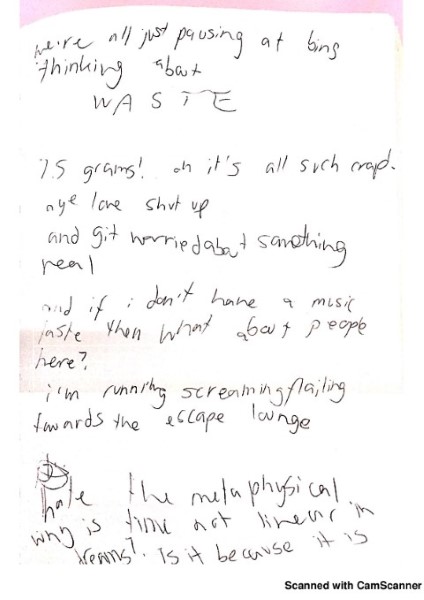 we're all just pausing at bins
thinking about
WASTE
7.5 grams! oh it's all such crap.
aye love shut up
and git worried about something
real
and if i don't have a music
taste then what about people
here?
i'm running screaming flailing
towards the escape lounge
hate the metaphysical
why is time not linear in
dreams? Is it because it is
Scanned with CamScanner